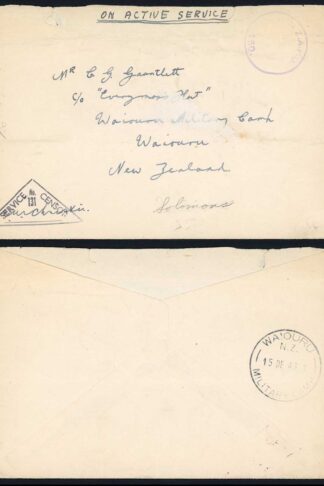 ON ACTIVE SERVICE
Mr C G Gauntlett
c/o "Everyman's Hut"
Waiouru Military Camp
Waiouru
New Zealand
Solomons
SERVICE No. 131 CENSOR
WAIOURU
N.Z.
15 DE 43
MILITARY